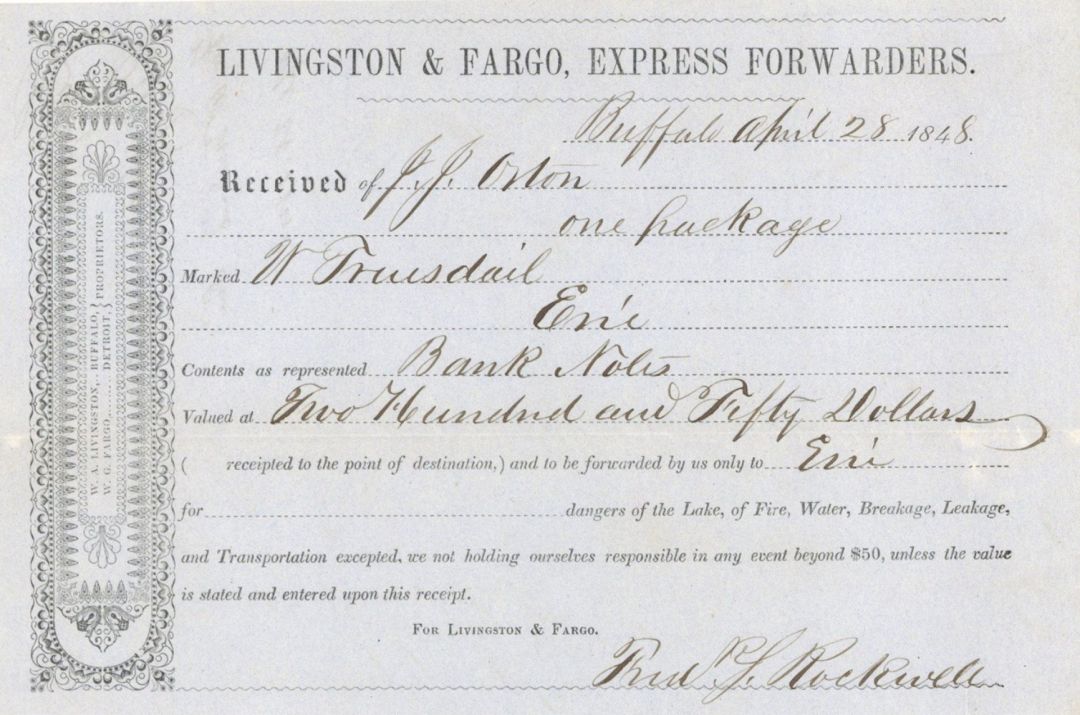 LIVINGSTON & FARGO, EXPRESS FORWARDERS.
Buffalo April 28 1848.
Received of J. J. Orton
one package
Marked W Truesdail
Erie
Contents as represented Bank Notes
Valued at Two Hundred and Fifty Dollars
( receipted to the point of destination,) and to be forwarded by us only to Erie
for dangers of the Lake, of Fire, Water, Breakage, Leakage,
and Transportation excepted, we not holding ourselves responsible in any event beyond $50, unless the value
is stated and entered upon this receipt.
FOR LIVINGSTON & FARGO.
Fred S. Rockwell
W. A. LIVINGSTON, BUFFALO, } PROPRIETORS.
W. G. FARGO, DETROIT, }